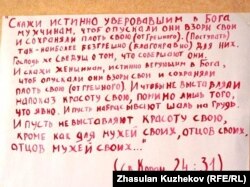 "Скажи истинно уверовавшим в Бога
мужчинам, чтоб опускали они взоры свои
и сохраняли плоть свою (от грешного). (Поступать)
так - наиболее безгрешно (благонравно) для них.
Господь же сведущ о том, что совершают они.
И скажи женщинам, истинно верующим в Бога,
чтоб опускали они взоры свои и сохраняли
плоть свою (от грешного). И чтобы не выставляли
напоказ красоту свою, помимо лишь того,
что явно. И пусть набрасывают шаль на грудь.
И пусть не выставляют красоту свою,
кроме как для мужей своих, отцов своих,
отцов мужей своих..."
(св. Коран 24:31)
Zhasulan Kuzhekov (RFE/RL)